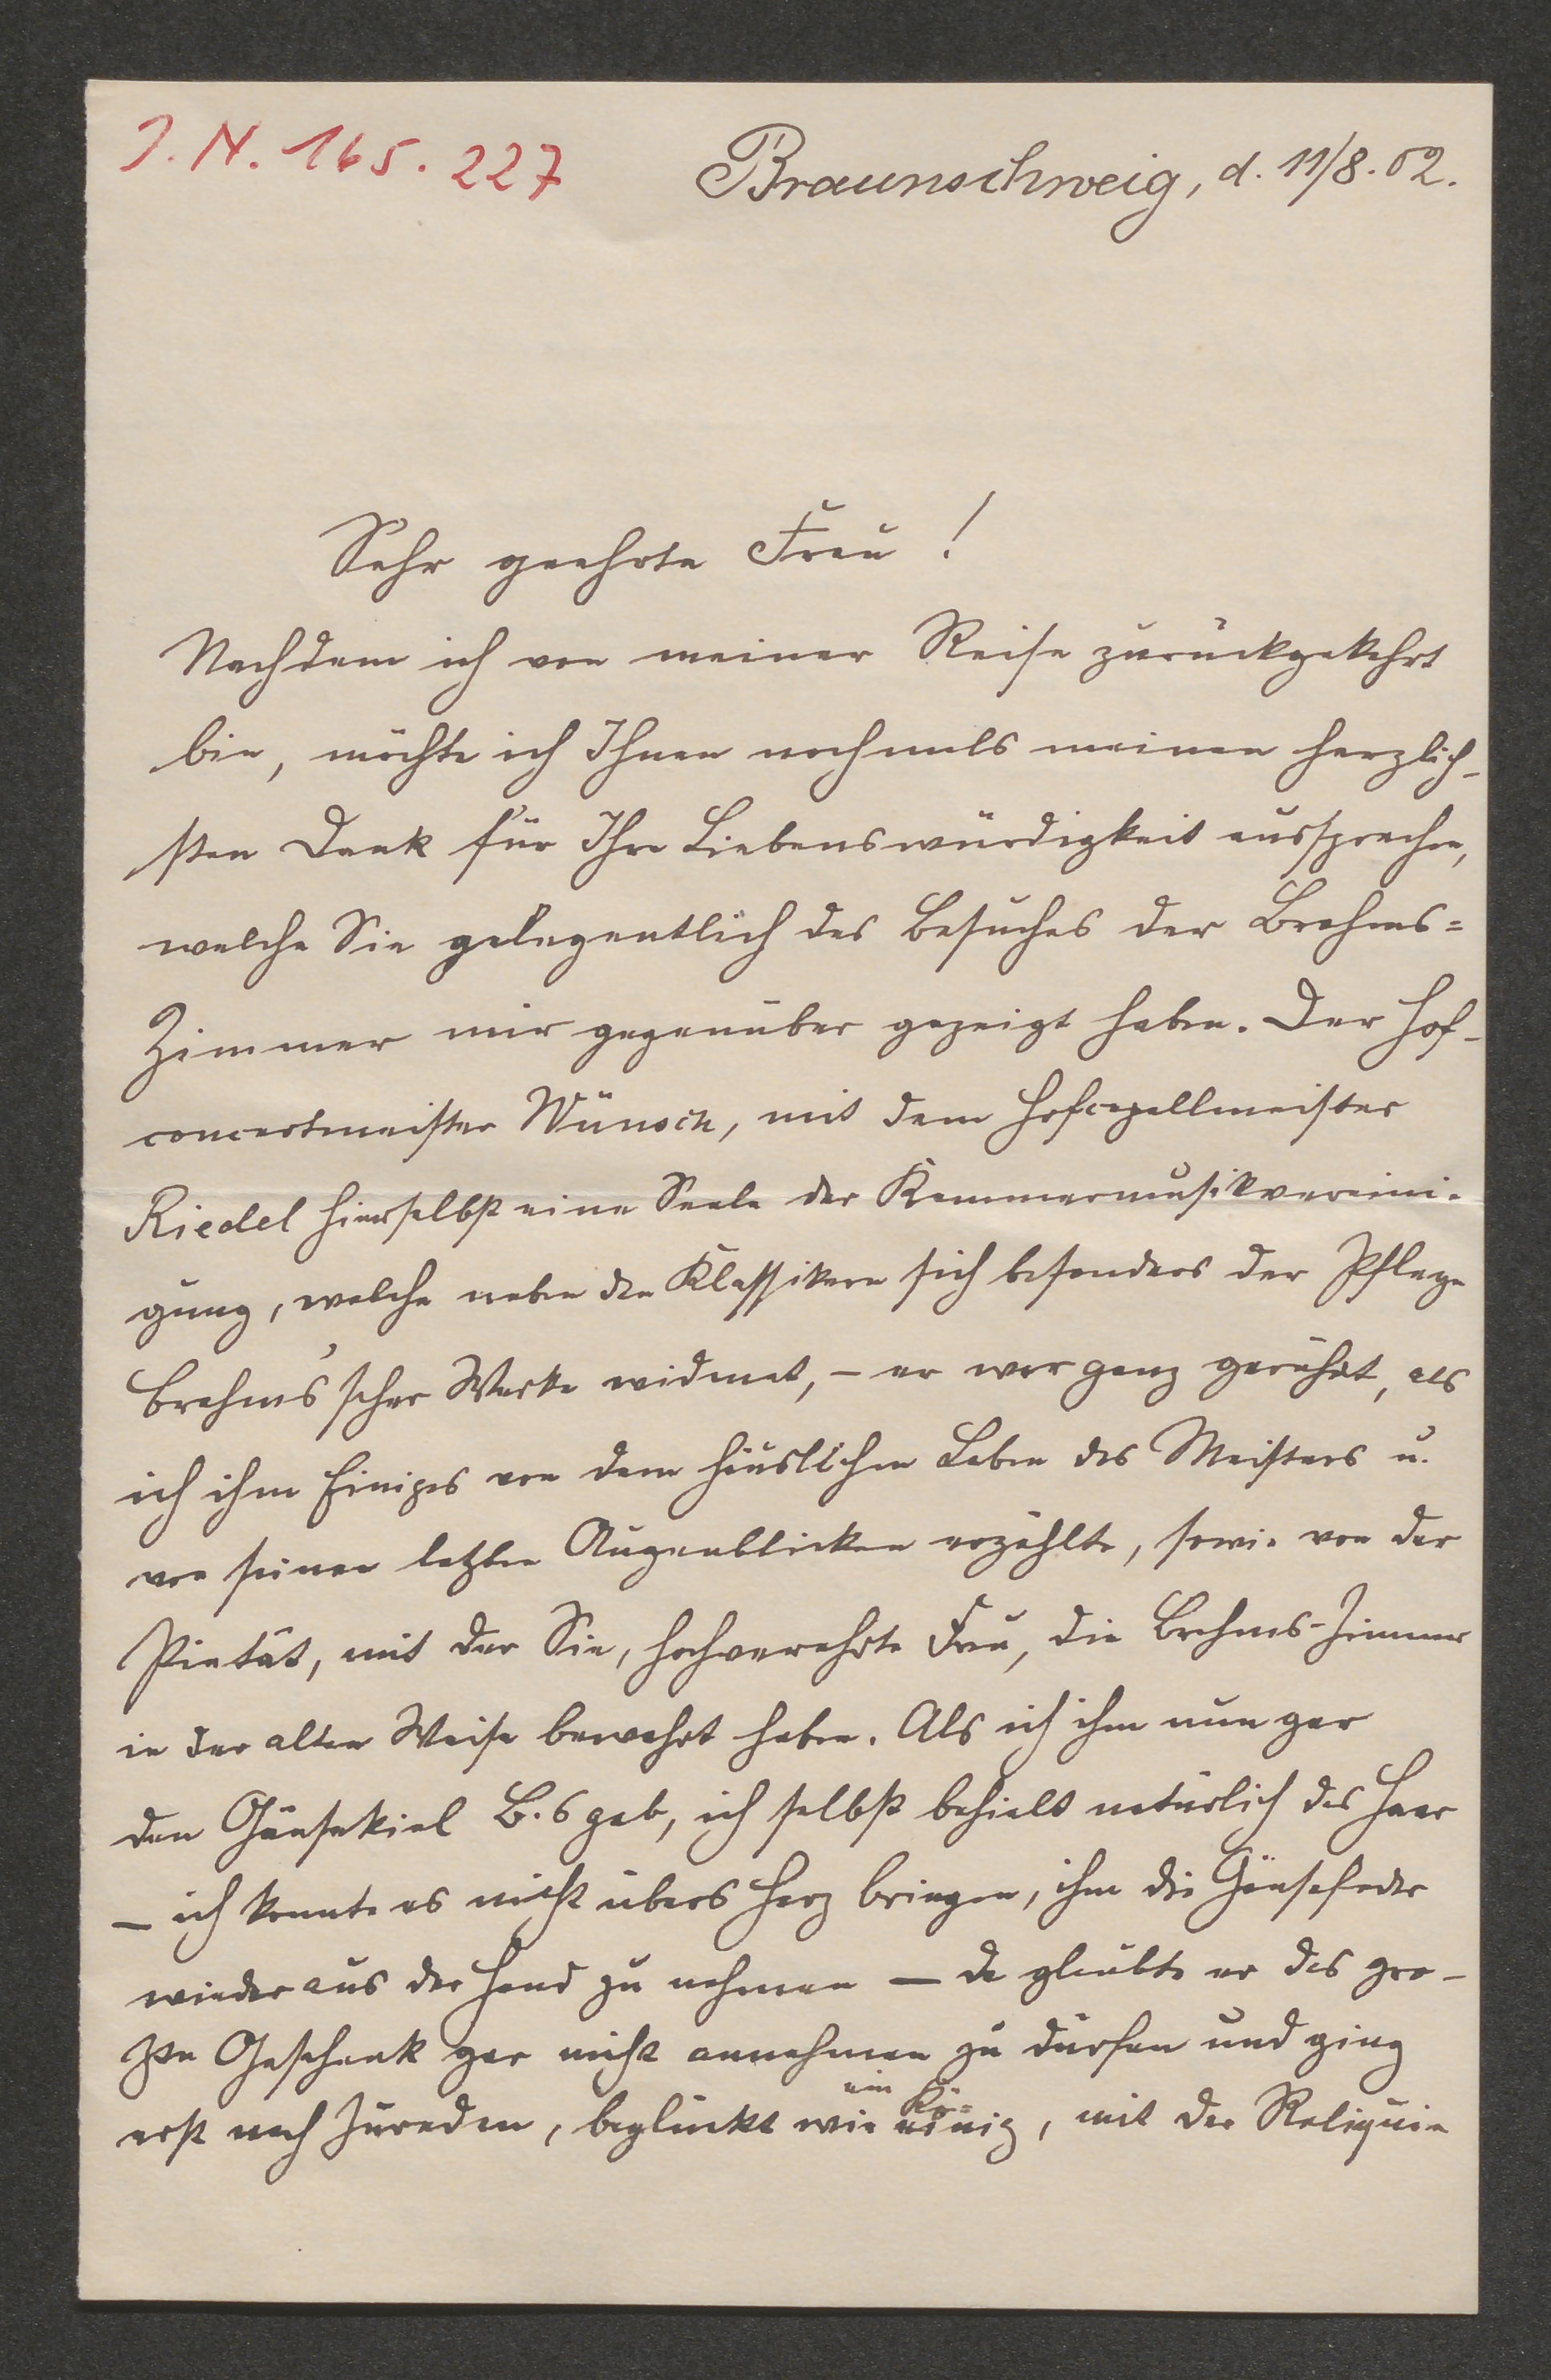 J. N. 165.227
Braunschweig, d. 11/8. 02.
Sehr geehrte Frau!
Nachdem ich von meiner Reise zurückgekehrt
bin, möchte ich Ihnen nochmals meinen herzlich-
sten Dank für Ihre Liebenswürdigkeit aussprechen,
welche Sie gelegentlich des Besuches der Brahms=
Zimmer mir gegenüber gezeigt haben. Der Hof-
concertmeister Wünsch, mit dem Hofcapellmeister
Riedel hierselbst eine Seele der Kammermusikvereini-
gung, welche neben den Klassikern sich besonders der Pflege
Brahms'scher Werke widmet, – er war ganz gerührt, als
ich ihm Einiges von dem häuslichen Leben des Meisters u.
von seinen letzten Augenblicken erzählte, sowie von der
Pietät, mit der Sie, hochverehrte Frau, die Brahms-Zimmer
in der alten Weise bewahrt haben. Als ich ihm nun gar
den Gänsekiel B.s gab, ich selbst behielt natürlich das Haar
– ich konnte es nicht übers Herz bringen, ihm die Gänsefeder
wieder aus der Hand zu nehmen – da glaubte er das gro-
ße Geschenk gar nicht annehmen zu dürfen und ging
erst nach Zureden, beglückt wie ein König, mit der Reliquie